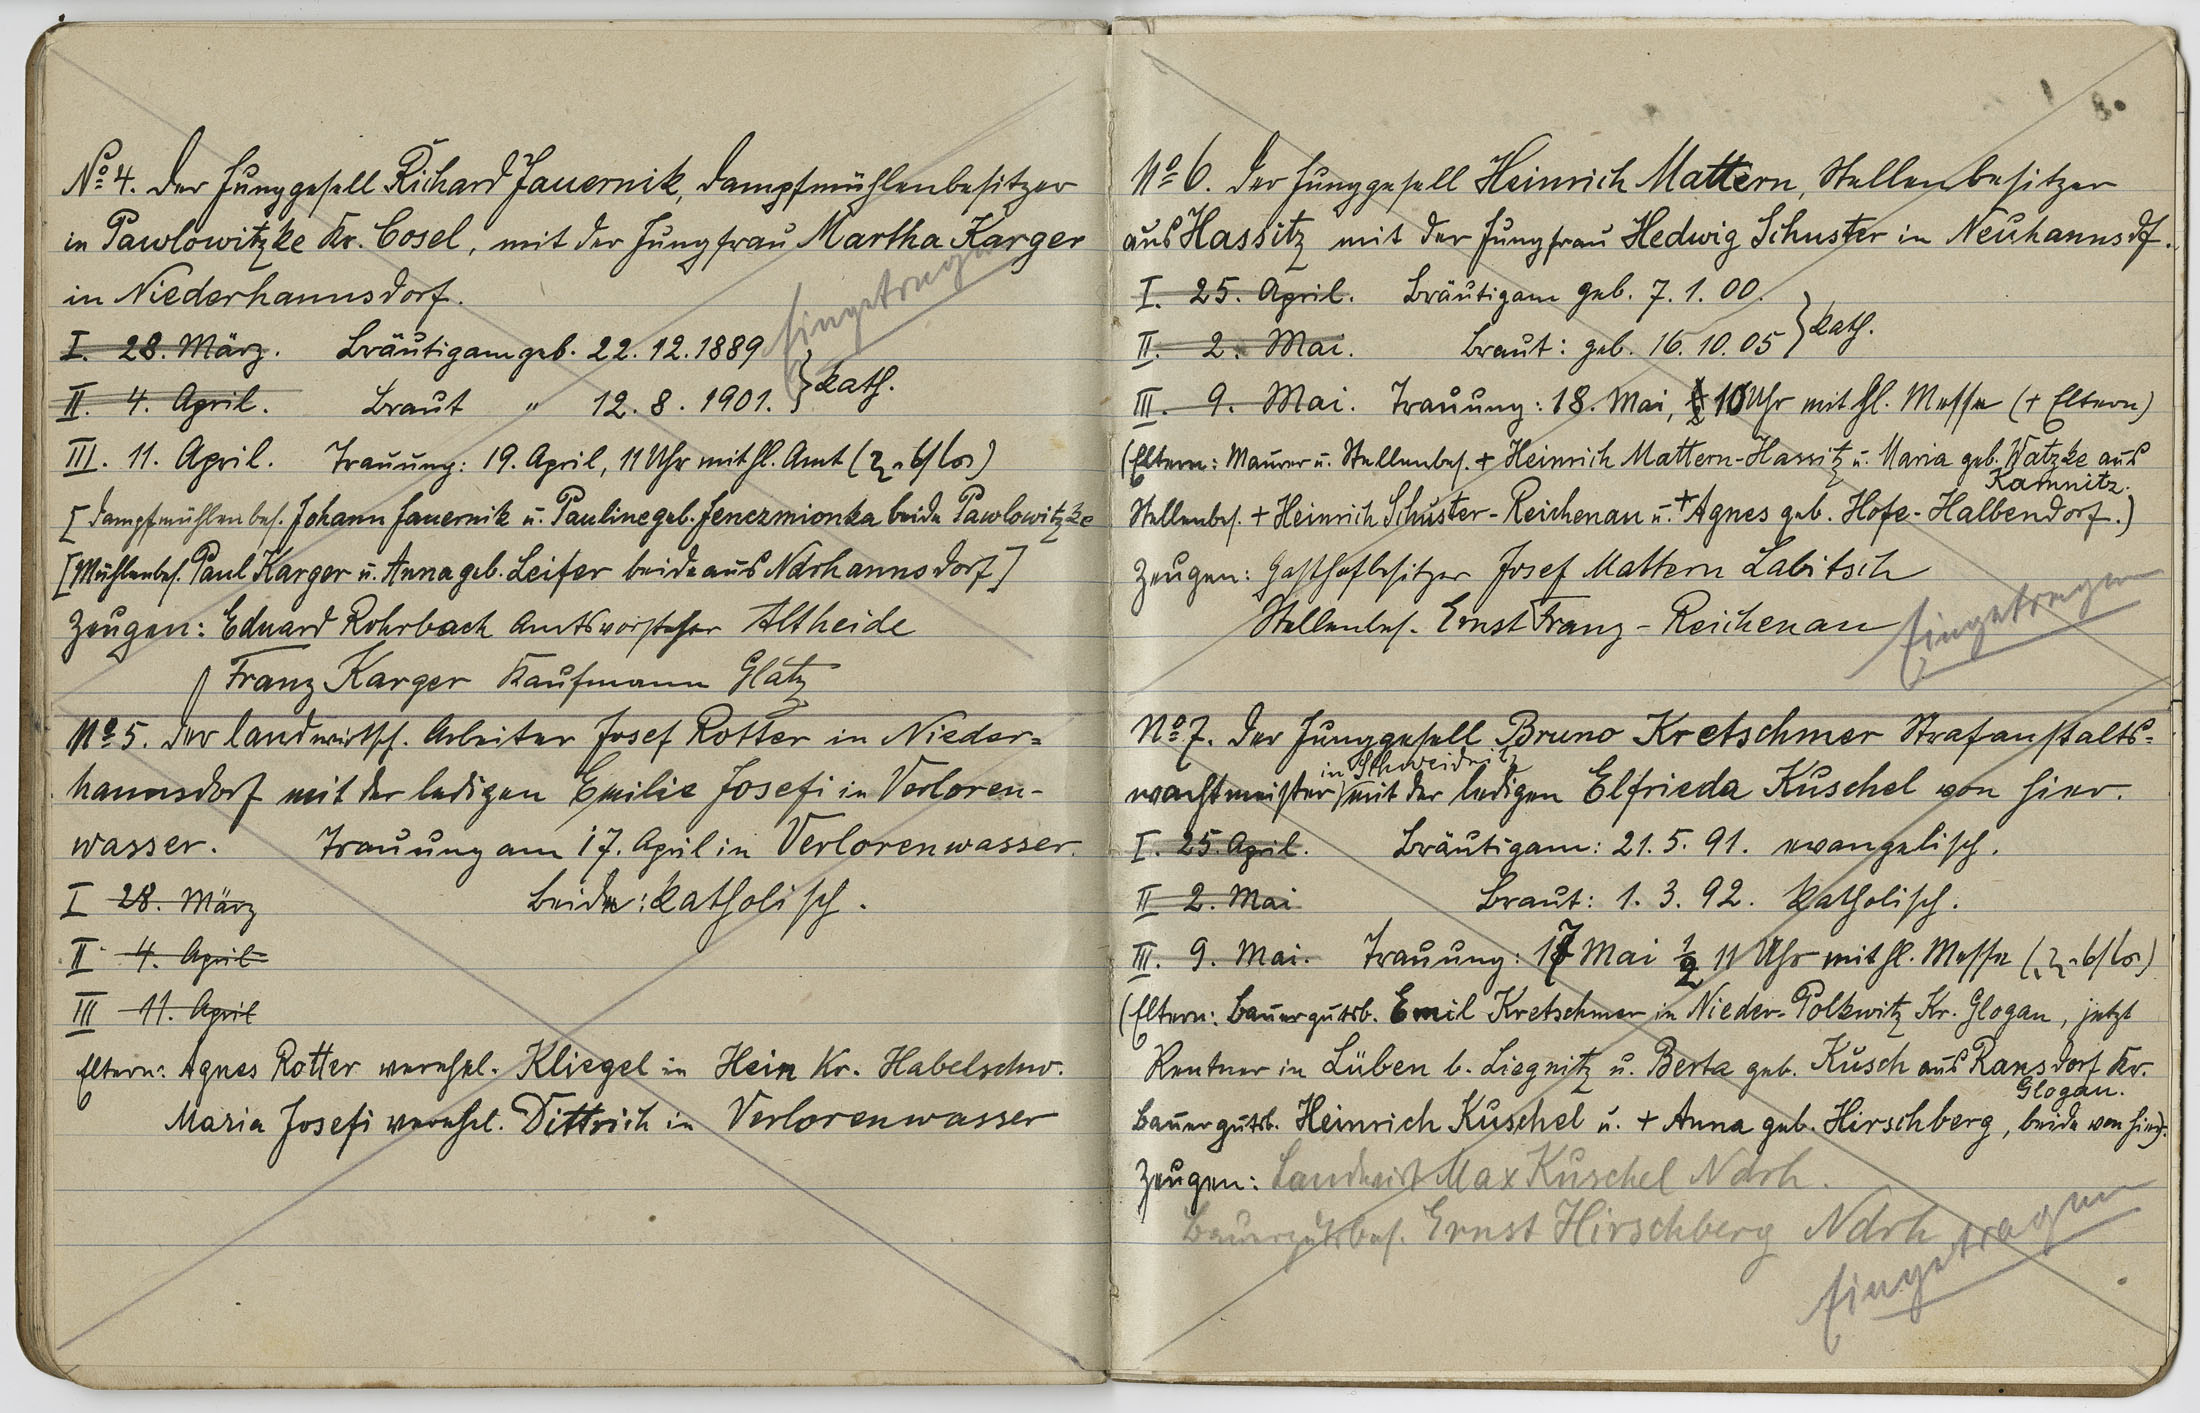 No 4. Der Junggesell Richard Jauernik, Dampfmühlenbesitzer
in Pawlowitzke Kr. Cosel, mit der Jungfrau Martha Karger
in Niederhannsdorf.
Eingetragen
I. 28. März. Bräutigam geb. 22.12.1889
II. 4. April. Braut " 12.8.1901. } kath.
III. 11. April. Trauung: 19. April, 11 Uhr mit hl. Amt
[Dampfmühlenbes. Johann Jauernik u. Pauline geb. Jenczmionka beide Pawlowitzke
[Mühlenbes. Paul Karger u. Anna geb. Leifer beide aus Ndrhannsdorf]
Zeugen: Eduard Rohrbach Amtsvorsteher Altheide
Franz Karger Kaufmann Glatz
No 5. Der landwirtsch. Arbeiter Josef Rotter in Nieder-
hannsdorf mit der ledigen Emilie Josefi in Verloren-
wasser. Trauung am 17. April in Verlorenwasser.
I 28. März beide: katholisch.
II 4. April
III 11. April
Eltern: Agnes Rotter verehel. Kliegel in Hein Kr. Habelschw.
Maria Josefi verehel. Dittrich in Verlorenwasser
No 6. Der Junggesell Heinrich Mattern, Stellenbesitzer
aus Hassitz mit der Jungfrau Hedwig Schuster in Neuhannsdf.
I. 25. April. Bräutigam geb. 7.1.00.
II. 2. Mai. Braut: geb. 16.10.05 } kath.
III. 9. Mai. Trauung: 18. Mai, 10 Uhr mit hl. Messe (+ Eltern)
(Eltern: Maurer u. Stellenbes. + Heinrich Mattern-Hassitz u. Maria geb. Watzke aus
Kamnitz.
Stellenbes. + Heinrich Schuster-Reichenau u. + Agnes geb. Hofe-Halbendorf.)
Zeugen: Gasthofbesitzer Josef Mattern Labitsch
Stellenbes. Ernst Franz-Reichenau
Eingetragen
No 7. Der Junggesell Bruno Kretschmer Strafanstalts-
in Schweidnitz
wachtmeister mit der ledigen Elfrieda Kuschel von hier.
I. 25. April. Bräutigam: 21.5.91. evangelisch.
II 2. Mai Braut: 1.3.92. katholisch.
III. 9. Mai. Trauung: 17 Mai 1/2 11 Uhr mit hl. Messe
(Eltern: Bauergutsb. Emil Kretschmer in Nieder-Polkwitz Kr. Glogau, jetzt
Rentner in Lüben b. Liegnitz u. Berta geb. Kusch aus Kr.
Glogau.
Bauergutsb. Heinrich Kuschel u. + Anna geb. Hirschberg, beide von hier).
Zeugen: Landwirt Max Kuschel Ndrh.
Bauergutsbes. Ernst Hirschberg Ndrh
Eingetragen